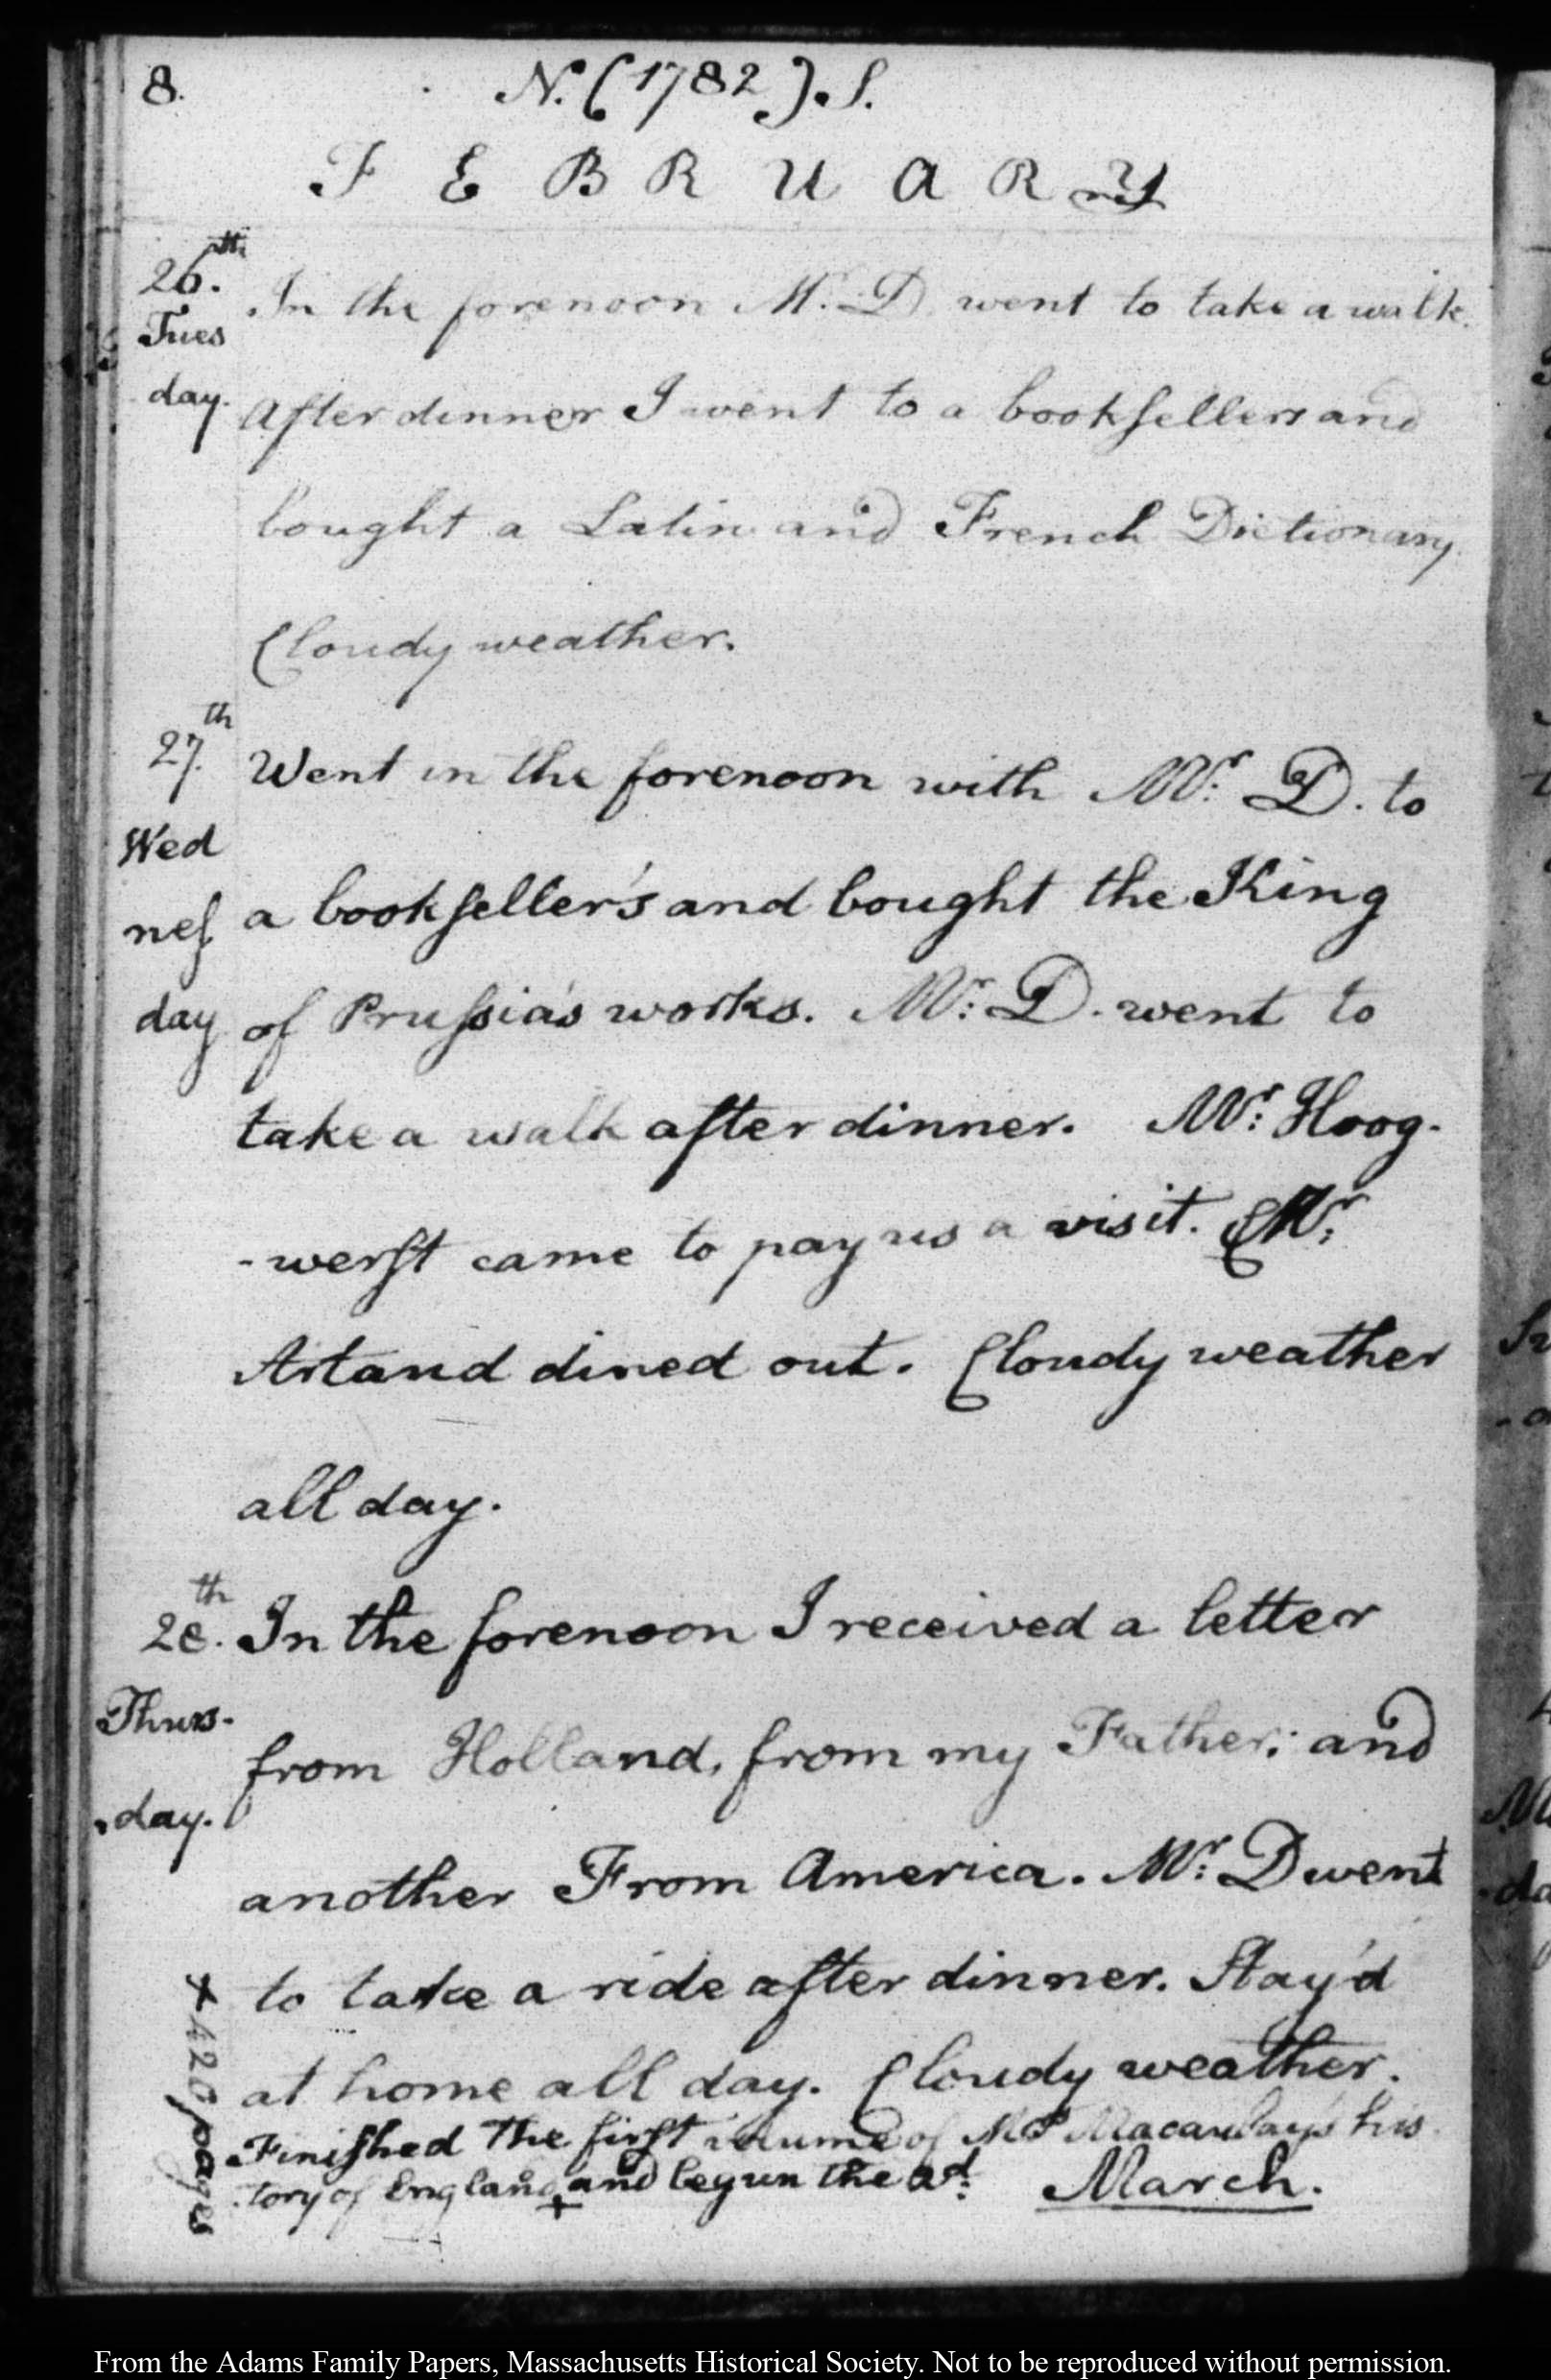 8.
N. (1782). S.
F E B R U A R Y
26.th
Tues
day.
In the forenoon Mr. D. went to take a walk.
After dinner I went to a bookſellers and
bought a Latin and French Dictionary
Cloudy weather.
27.th
Wed
neſ
day
Went in the forenoon with Mr: D. to
a bookſeller's and bought the King
of Pruſsia's works. Mr: D. went to
take a walk after dinner. Mr: Hoog-
-werſt came to pay us a visit. & Mr:
Artaud dined out. Cloudy weather
all day.
28.th
Thurs-
-day.
In the forenoon I received a letter
from Holland, from my Father; and
another From America. Mr: D went
to take a ride after dinner. Stay'd
at home all day. Cloudy weather.
Finiſhed the firſt volume of Mrs Macaulay's his-
tory of England + and begun the 2d.
March.
+ 420 pages
From the Adams Family Papers, Massachusetts Historical Society. Not to be reproduced without permission.